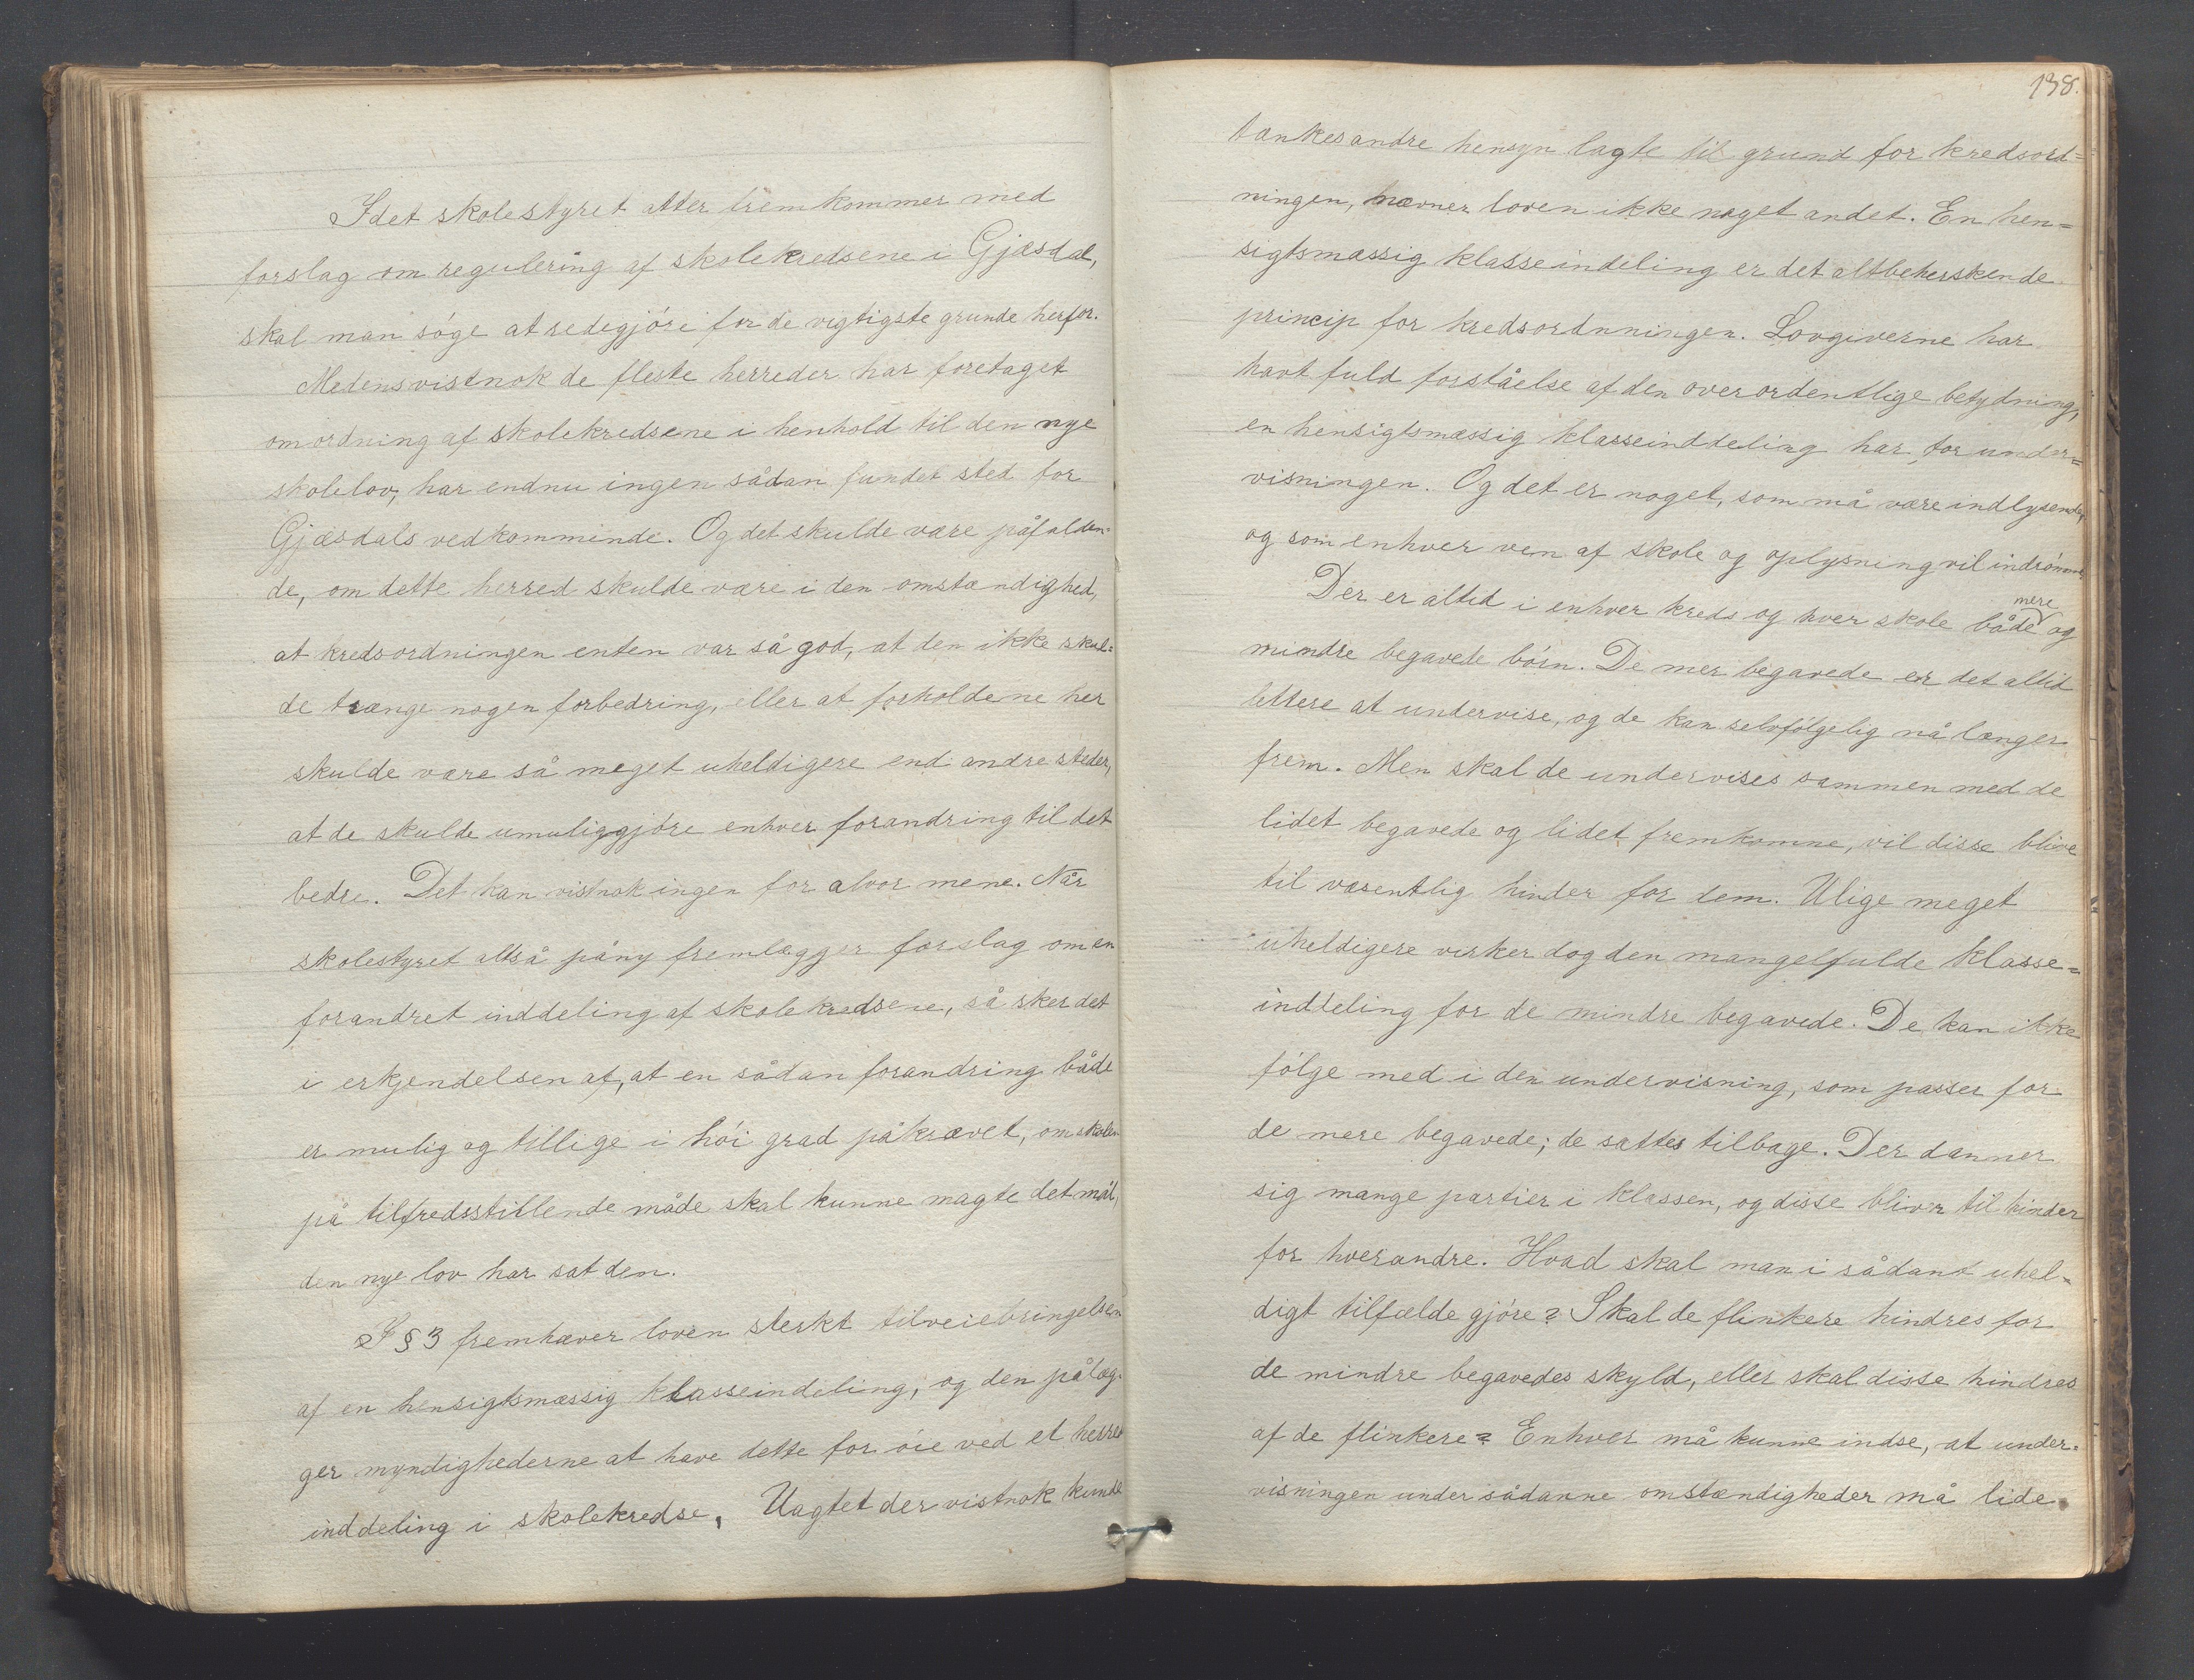 Idet skolestyret atter fremkommer med
forslag om regulering af skolekredsene i Gjæsdal,
skal man söge at redegjöre for de vigtigste grunde herfor.
Medens vistnok de fleste herreder har foretaget
omordning af skolekredsene i henhold til den nye
skolelov, har endnu ingen sådan fundet sted for
Gjæsdals vedkomminde. Og det skulde være påfalden=
de, om dette herred skulde være i den omstændighed,
at kredsordningen enten var så god, at den ikke skul=
de trænge nogen forbedring, eller at forholdene her
skulde være så meget uheldigere end andre steder,
at de skulde umuliggjöre enhver forandring til det
bedre. Det kan vistnok ingen for alvor mene. Når
skolestyret altså påny fremlægger forslag om en
forandret inddeling af skolekredsene, så sker det
i erkjendelsen af, at en sådan forandring både
er mulig og tillige i höi grad påkrævet, om skolen
på tilfredsstillende måde skal kunne magte det mål,
den nye lov har sat den.
I § 3 fremhæver loven sterkt tilveiebringelsen
af en hensigtsmæssig klasseindeling, og den pålæg=
ger myndighederne at have dette for öie ved et herreds
inddeling i skolekredse. Uagtet der vistnok kunde
138.
tænkes andre hensyn lagte til grund for kredsord=
ningen, nævner loven ikke noget andet. En hen=
sigtsmæssig klasseindeling er det altbeherskende
princip for kredsordnningen. Lovgiverne har
havt fuld forståelse af den overordentlige betydning,
en hensigtsmæssig klasseinddeling har for under=
visningen. Og det er noget, som må være indlysende,
og som enhver ven af skole og oplysning vil indrömme.
Der er altid i enhver kreds og hver skole både mere og
mindre begavede börn. De mer begavede er det altid
lettere at undervise, og de kan selvfölgelig nå længer
frem. Men skal de undervises sammen med de
lidet begavede og lidet fremkomne, vil disse blive
til væsentlig hinder for dem. Ulige meget
uheldigere virker dog den mangelfulde klasse=
inddeling for de mindre begavede. De kan ikke
fölge med i den undervisning, som passer for
de mere begavede; de sættes tilbage. Der danner
sig mange partier i klassen, og disse bliver til hinder
for hverandre. Hvad skal man i sådant uhel=
digt tilfælde gjöre? Skal de flinkere hindres for
de mindre begavedes skyld, eller skal disse hindres
af de flinkere? Enhver må kunne indse, at under=
visningen under sådanne omstændigheder må lide.